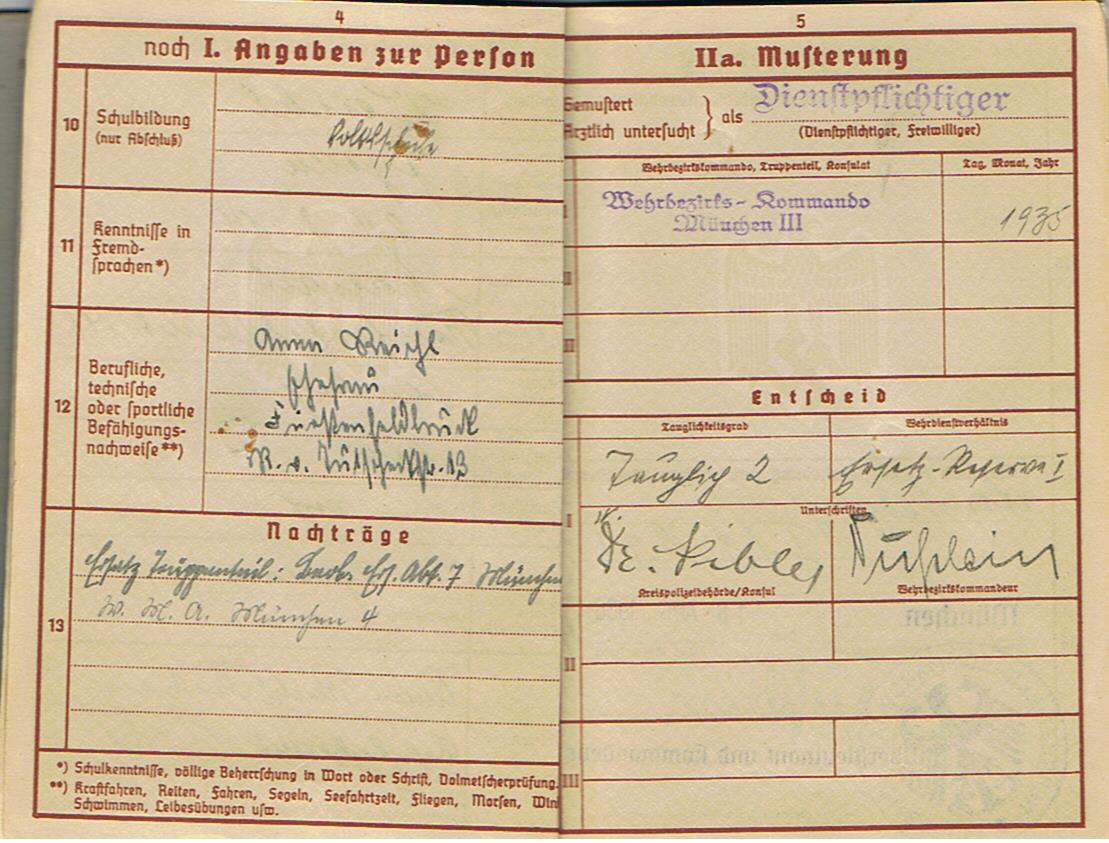 4
noch I. Angaben zur Person
10
Schulbildung
(nur Abschluß)
Volksschule
11
Kenntnisse in
Fremd-
sprachen*)
12
Berufliche,
technische
oder sportliche
Befähigungs-
nachweise**)
Anna Reichl
Ehefrau
Fürstenfeldbruck
13
13
Nachträge
Ersatz Truppenteil: Beob. Ers. Abt. 7 München
W. M. A. München 4
*) Schulkenntnisse, völlige Beherrschung in Wort oder Schrift, Dolmetscherprüfung.
**) Kraftfahren, Reiten, Fahren, Segeln, Seefahrtzeit, Fliegen, Morsen, Win
Schwimmen, Leibesübungen usw.
5
IIa. Musterung
Gemustert
Ärztlich untersucht
als
Dienstpflichtiger
(Dienstpflichtiger, Freiwilliger)
Wehrbezirkskommando, Truppenteil, Konsulat
Tag, Monat, Jahr
I
Wehrbezirks-Kommando
München III
1935
II
II
Entscheid
Tauglichkeitsgrad
Wehrdienstverhältnis
Tauglich 2
Ersatz-Reserve I
I
Unterschriften
Dr.
Kreispolizeibehörde/Konsul
Wehrbezirkskommandeur
II
III